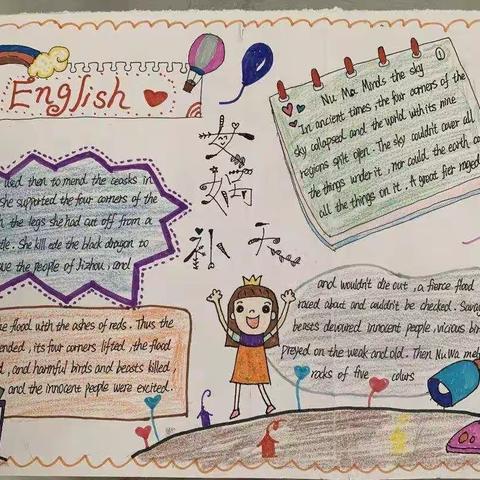 English
女娲
补天
①
Nu Ma Minds the sky
In ancient times, the four corners of the
sky colapsed and the world with its nine
regions split open. The sky couldn't cover all
the things under it, nor could the earth
all the things on it. A great fier raged
and wouldn't die out, a fierce flood
raced about and couldn't be checked. Savag
beasts devoured innocent people, vicious bir
preyed on the weak and old. Then NuWa mel
rocks of five colurs
used then to mend the ceasks in
she supported the four corners of the
the legs she had cut off from a
tle. She kill ede the black dragon to
the people of Jizhou, and
flood with the ashes of reds. Thus the
ended, its four corners lifted, the flood
, and harmful birds and beasts killed,
and the innocent people were excited.